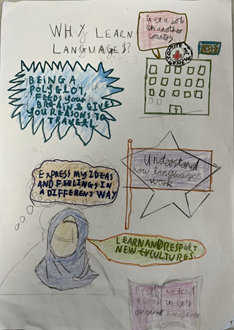 WHY LEARN
LANGUAGES?
Get a job
in another
country
BEING A
POLYGLOT
FEEDS YOUR
BRAIN & GIVE
YOU REASONS TO
TRAVEL
EXPRESS MY IDEAS
AND FEELINGS IN
A DIFFERENT WAY
Understand
my languages
work
LEARN AND RESPECT
NEW CULTURES
to read
in
original language